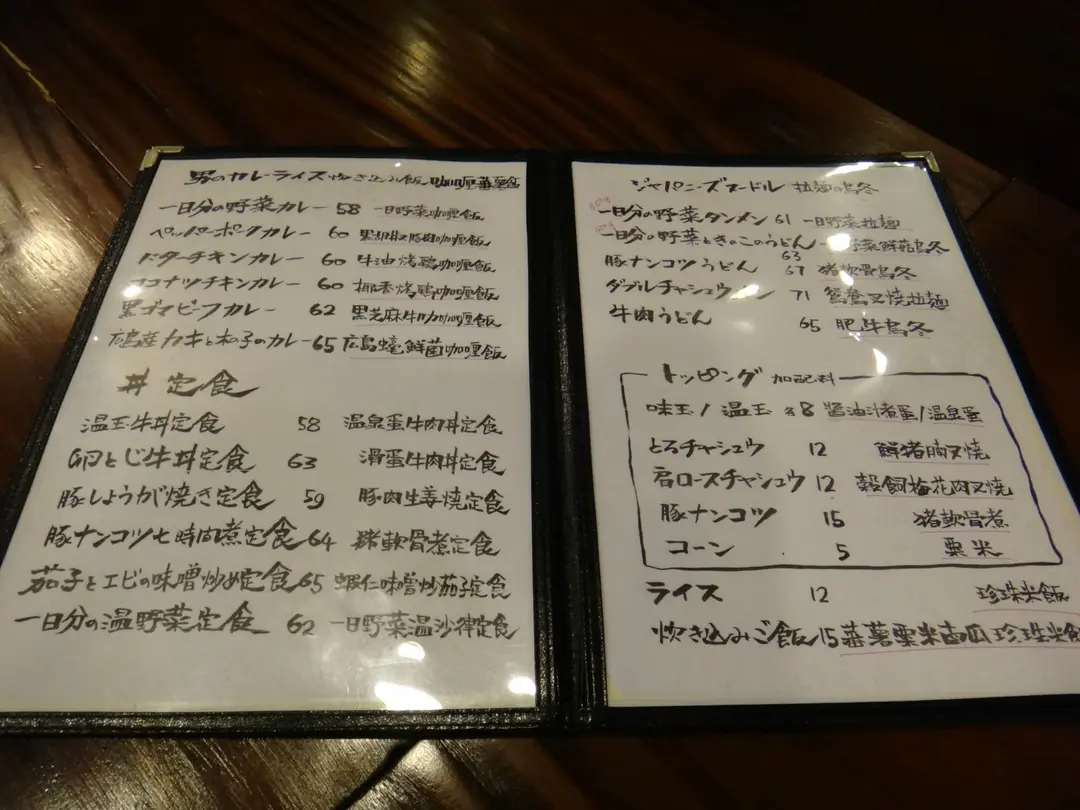 男のカレーライス 炊き込み飯 咖喱蕃薯飯
一日分の野菜カレー 58 一日野菜咖喱飯
ペッパーポークカレー 60 黒胡椒豚肉咖喱飯
バターチキンカレー 60 牛油烤鶏咖喱飯
ココナツチキンカレー 60 椰香烤鶏咖喱飯
黒ゴマビーフカレー 62 黒芝麻牛咖喱飯
広島産カキと木の子のカレー 65 広島蠔鮮菌咖喱飯
丼 定食
温玉牛丼定食 58 温泉蛋牛肉丼定食
卵とじ牛丼定食 63 滑蛋牛肉丼定食
豚しょうが焼き定食 59 豚肉生姜焼定食
豚ナンコツ七時間煮定食 64 猪軟骨煮定食
茄子とエビの味噌炒め定食 65 蝦仁味噌炒茄子定食
一日分の温野菜定食 62 一日野菜温沙律定食
ジャパニーズヌードル 拉麺 烏冬
一日分の野菜タンメン 61 一日野菜拉麺
一日分の野菜ときのこのうどん 63 野菜鮮菇烏冬
豚ナンコツうどん 67 猪軟骨烏冬
ダブルチャシュウ メン 71 鴛鴦叉焼拉麺
牛肉うどん 65 肥牛烏冬
トッピング 加配料
味玉/温玉 8 醤油汁煮蛋/温泉蛋
とろチャシュウ 12 鮮猪腩叉焼
肩ロースチャシュウ 12 穀飼梅花肉叉焼
豚ナンコツ 15 猪軟骨煮
コーン 5 粟米
ライス 12 珍珠米飯
炊き込みご飯 15 蕃薯粟米南瓜珍珠米飯